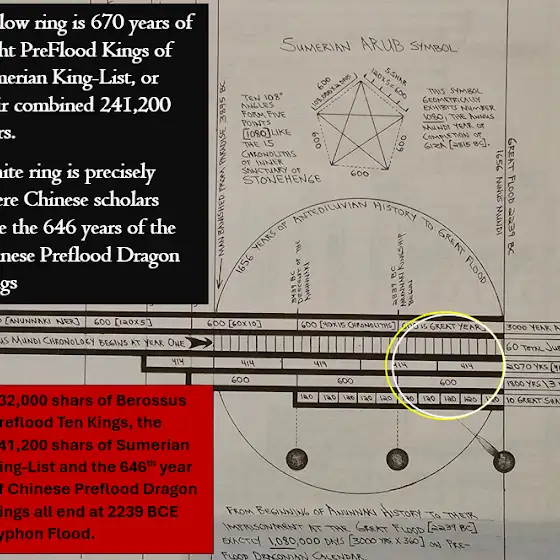 low ring is 670 years of
ht PreFlood Kings of
merian King-List, or
ir combined 241,200
rs.
ite ring is precisely
ere Chinese scholars
e the 646 years of the
inese Preflood Dragon
gs
SUMERIAN ARUB SYMBOL
600
108,000 x 2 DAYS
5 SHAR
120 x 5 = 600
600
600
600
TEN 108°
ANGLES
FORM FIVE
POINTS
[1080] LIKE
THE 15
CHRONOLITHS
OF INNER
SANCTUARY OF
STONEHENGE
THIS SYMBOL
GEOMETRICALLY
EXHIBITS NUMBER
1080, THE ANNUS
MUNDI YEAR OF
COMPLETION OF
GIZA [2815 BC].
MAN BANISHED FROM PARADISE 3895 BC
GREAT FLOOD 2239 BC
1656 ANNUS MUNDI
1656 YEARS OF ANTEDILUVIAN HISTORY TO GREAT FLOOD
3439 BC
DESCENT OF THE
ANUNNAKI
2839 BC
KINGSHIP
[ANUNNAKI NER]
600 [120x5]
600 [60x10]
600 [40x15 CHRONOLITHS]
600 IS GREAT YEAR
3000 YEAR
US MUNDI CHRONOLOGY BEGINS AT YEAR ONE
60 TOTAL
414 414 414 414 414
2070 YRS
600 600 600
1800 YRS
120 120 120 120 120 120 120 120 120 120
10 GREAT SHA
32,000 shars of Berossus
reflood Ten Kings, the
41,200 shars of Sumerian
ing-List and the 646th year
f Chinese Preflood Dragon
ings all end at 2239 BCE
yphon Flood.
FROM BEGINNING OF ANUNNAKI HISTORY TO THEIR
IMPRISONMENT AT THE GREAT FLOOD [2239 BC]
EXACTLY 1,080,000 DAYS [3000 YRS x 360] ON PRE-
FLOOD DRACONIAN CALENDAR.